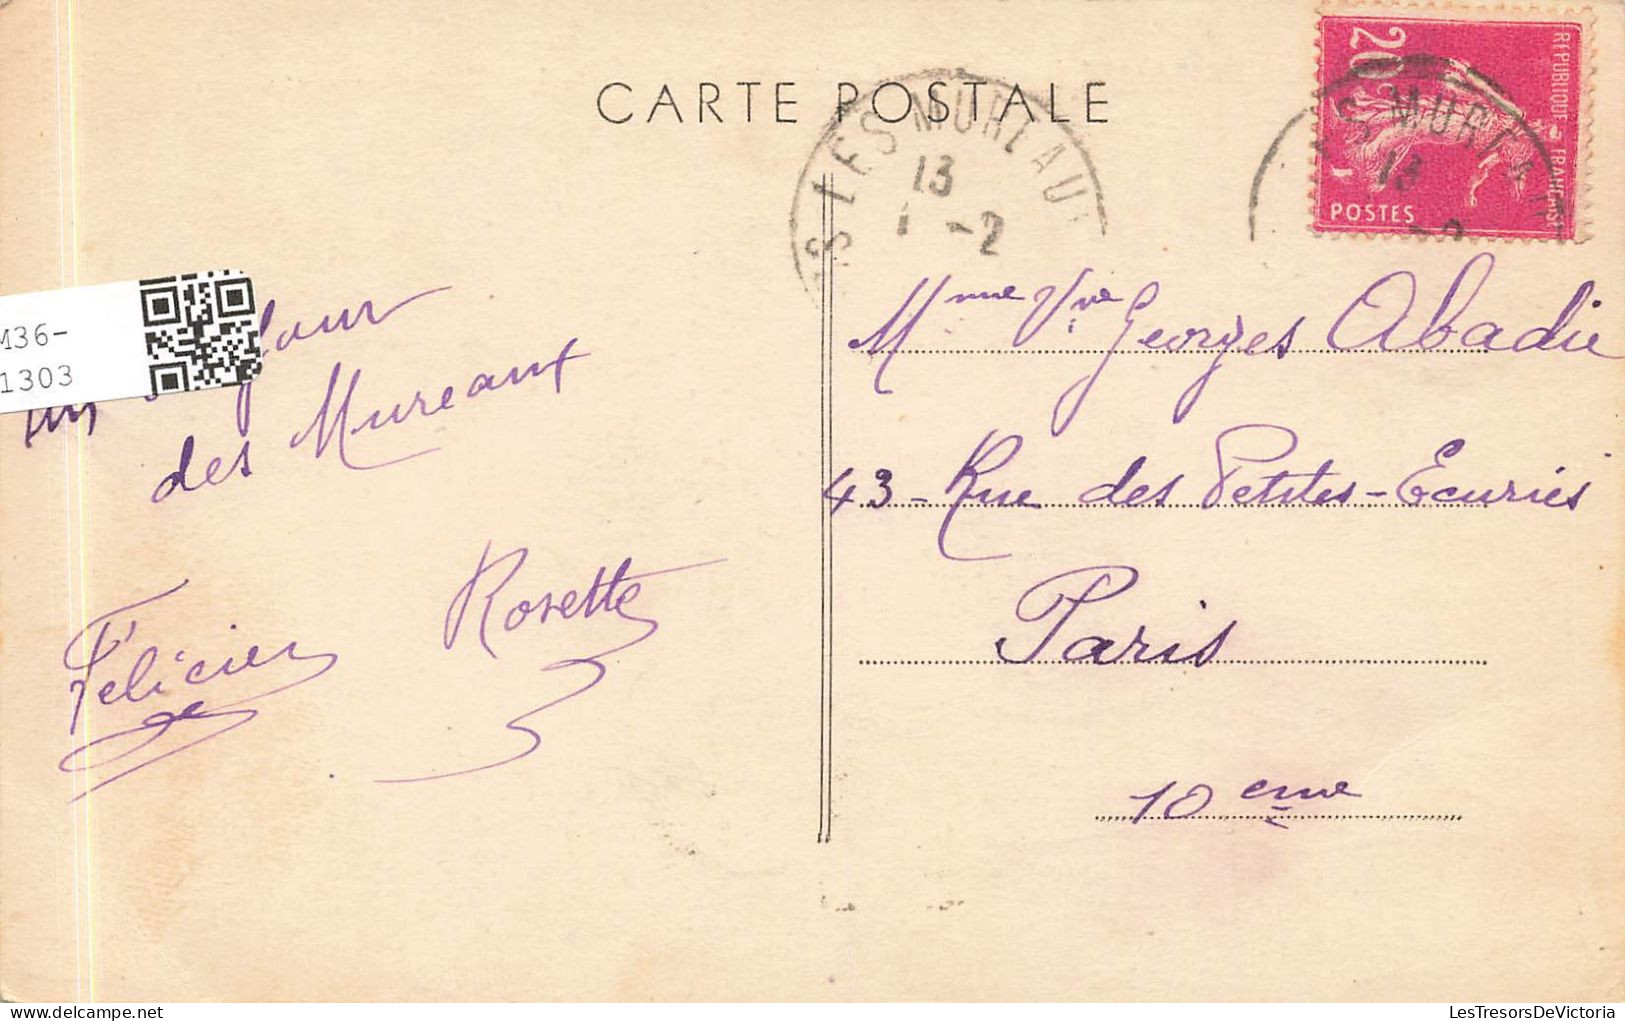 CARTE POSTALE
20c
REPUBLIQUE FRANCAISE
POSTES
S LES MUREAU
13
1 -2
S MUREA
13
-2
M36-
1303
un
des Mureaux
Félicien Rosette
Mme Vve Georges Abadie
43 - Rue des Petites-Ecuries
Paris
10 eme
LesTresorsDeVictoria